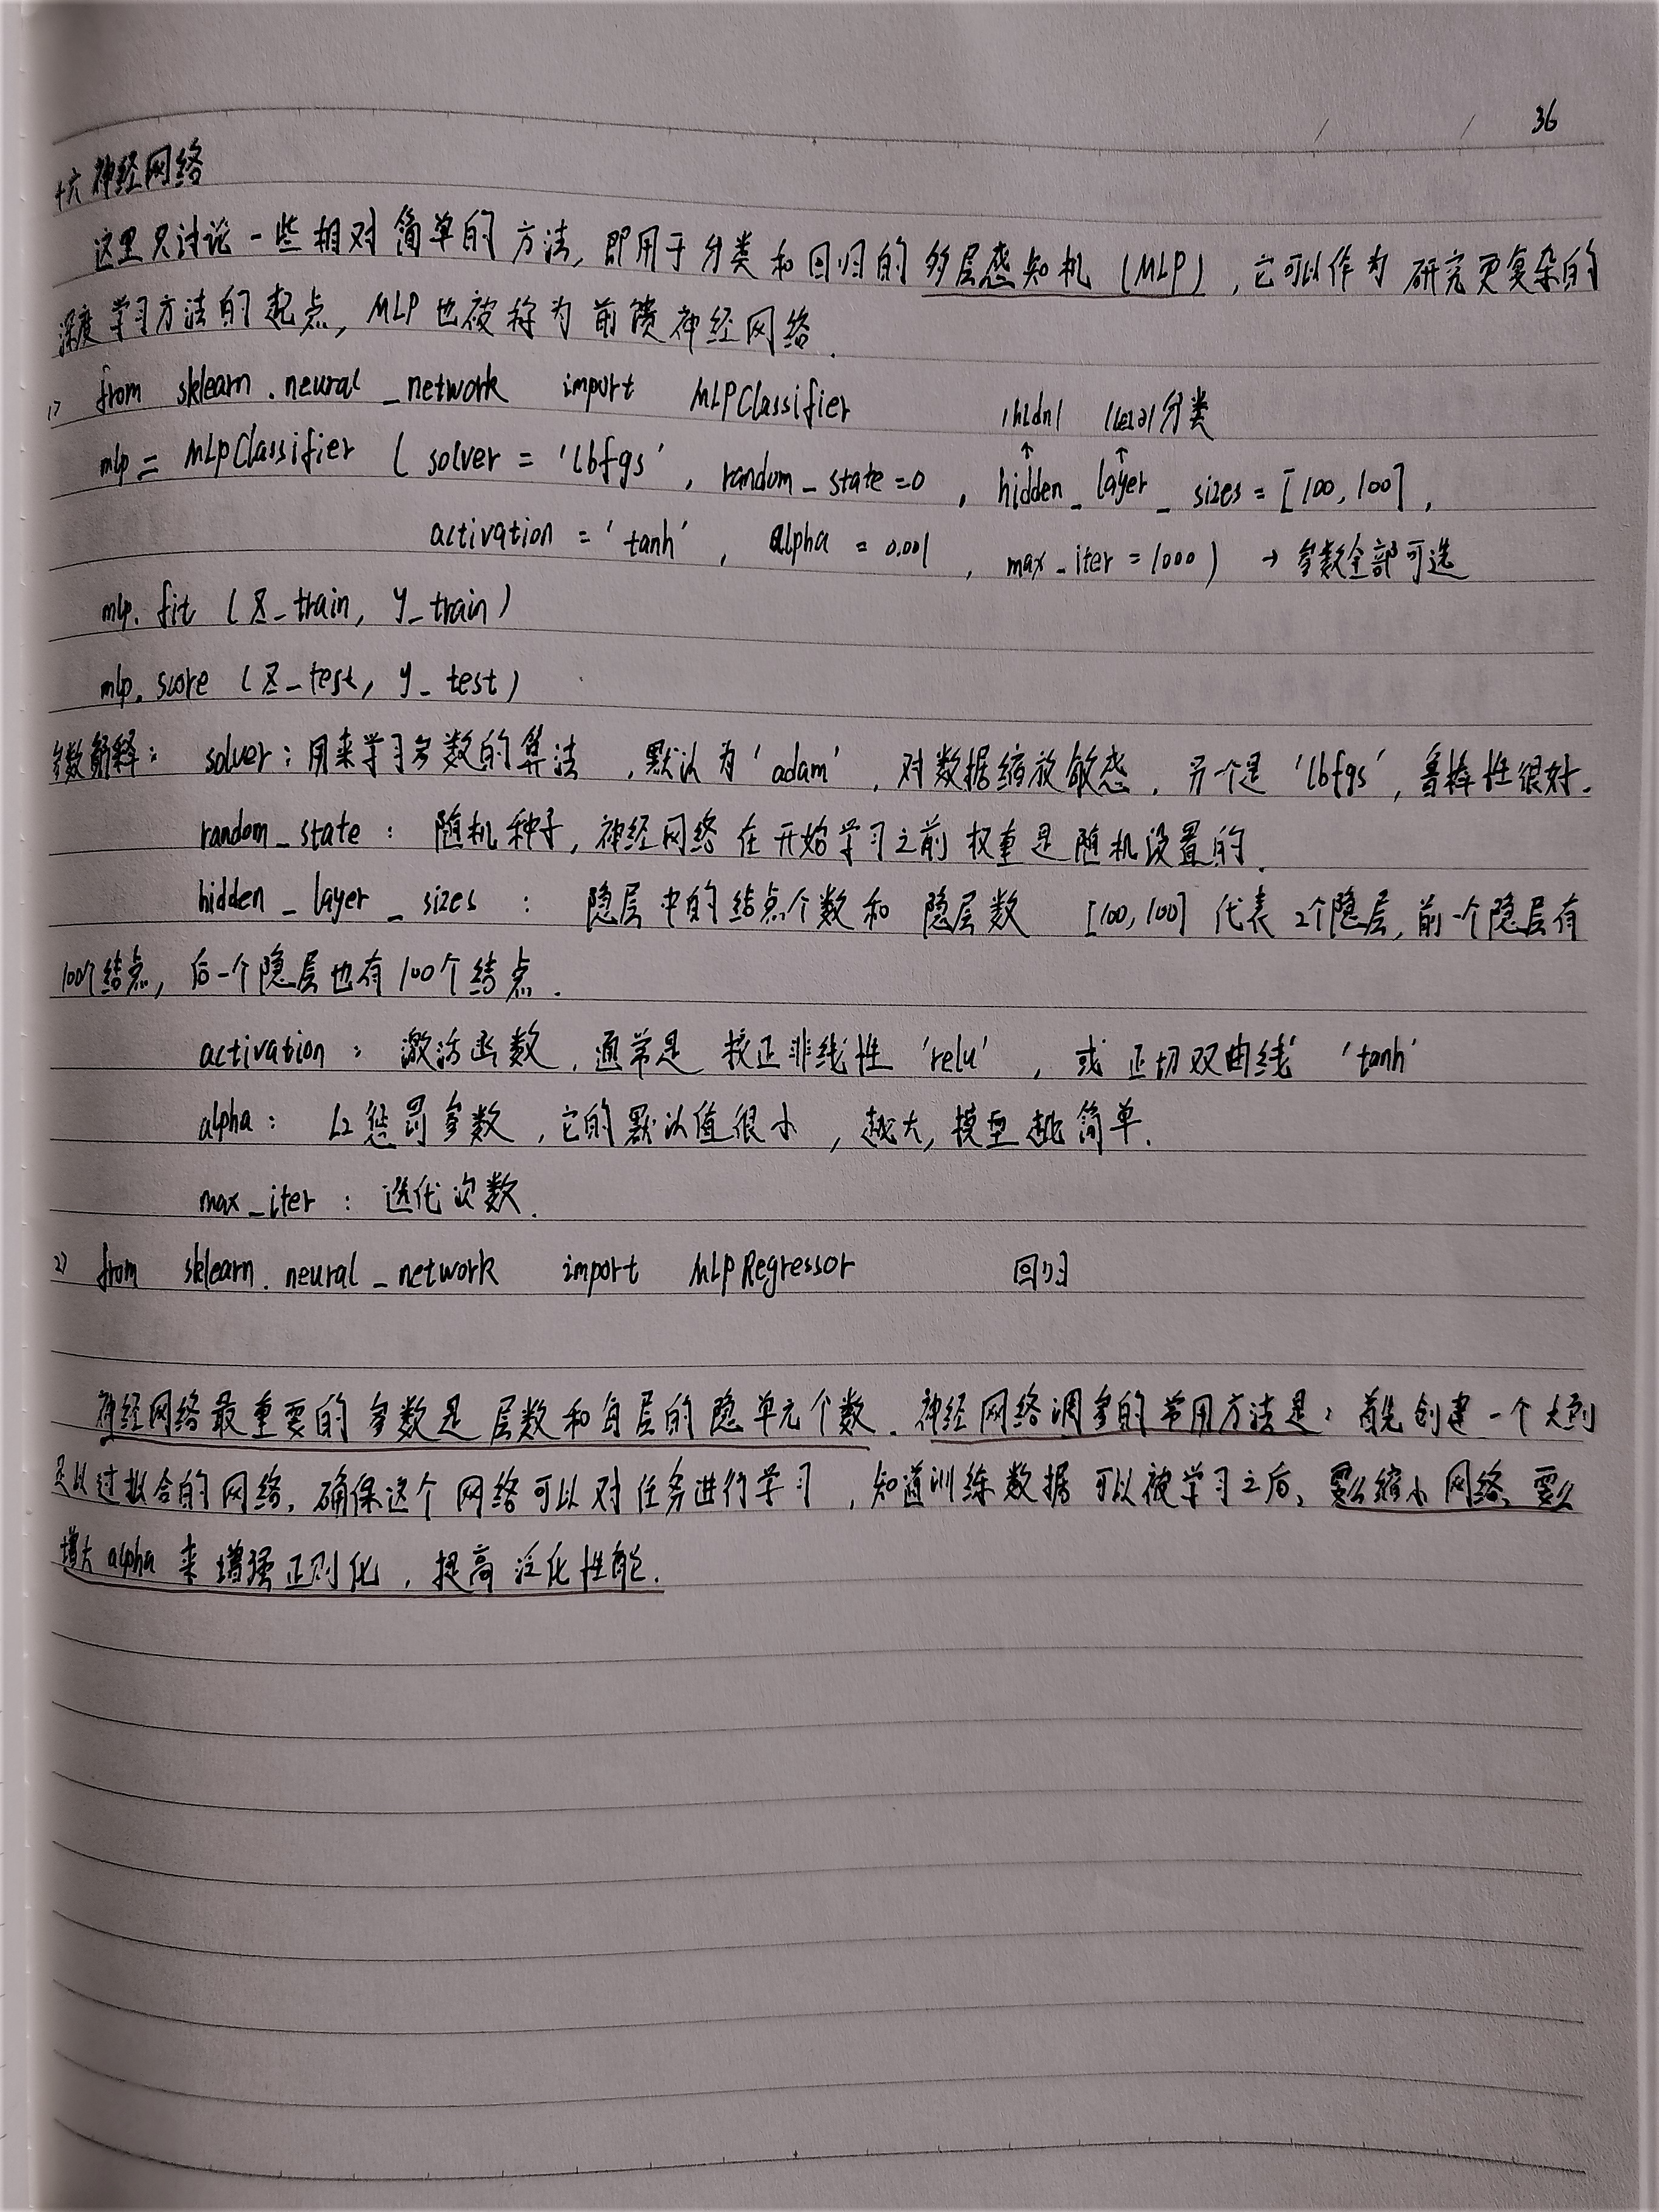 36
十六 神经网络
这里只讨论一些相对简单的方法,即用于分类和回归的多层感知机(MLP),它可以作为研究更复杂的
深度学习方法的起点,MLP也被称为前馈神经网络.
1) from sklearn.neural_network import MLPClassifier 分类
mlp = MLPClassifier ( solver = 'lbfgs' , random_state=0 , hidden_layer_sizes = [100,100] ,
activation = 'tanh' , alpha = 0.001 , max_iter = 1000 ) → 参数全部可选
mlp.fit ( X_train, y_train )
mlp.score ( X_test, y_test )
参数解释: solver:用来学习参数的算法,默认为'adam',对数据缩放敏感.另个是'lbfgs',鲁棒性很好.
random_state : 随机种子,神经网络在开始学习之前权重是随机设置的.
hidden_layer_sizes : 隐层中的结点个数和隐层数 [100,100] 代表2个隐层,前一个隐层有
100个结点,后一个隐层也有100个结点.
activation : 激活函数,通常是校正非线性'relu',或正切双曲线'tanh'
alpha: L2惩罚参数,它的默认值很小,越大,模型越简单.
max_iter : 迭代次数.
2) from sklearn.neural_network import MLPRegressor 回归
神经网络最重要的参数是层数和每层的隐单元个数.神经网络调参的常用方法是:首先创建一个大到
足以过拟合的网络,确保这个网络可以对任务进行学习,知道训练数据可以被学习之后,要么缩小网络,要么
增大alpha来增强正则化,提高泛化性能.